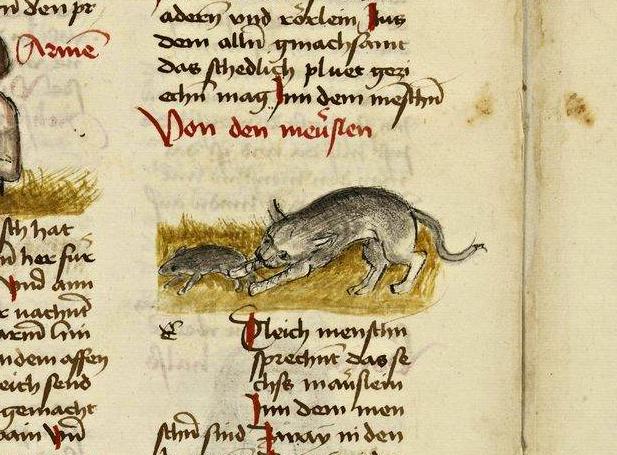 n den pr
Armē
sch hat
her für
vnd ann
ndem affen
eich send
gemacht
adern vnd rörlein Jus
dem alln gmachsamt
das schedlich pluet gezi
echn mag Jnn dem menschn
Von den meüslen
Gleich menschn
sprechnt das se
chss mäuslein
Jnn dem men
schn sind Zway in den